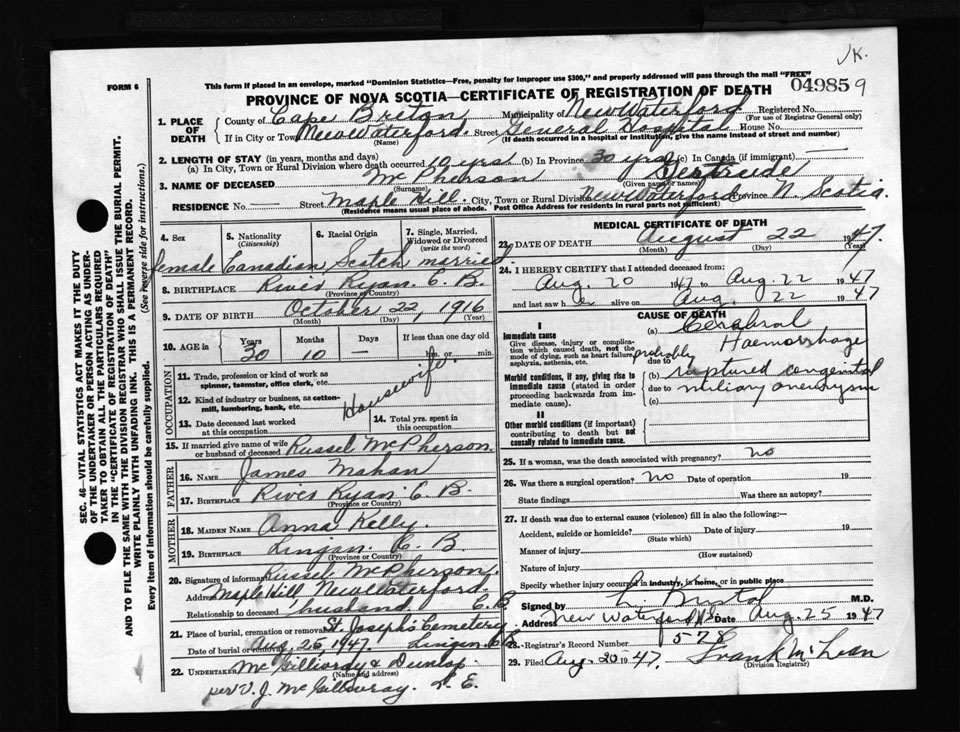 K.
This form if placed in an envelope, marked "Dominion Statistics—Free, penalty for improper use $300," and properly addressed will pass through the mail "FREE"
FORM 6
PROVINCE OF NOVA SCOTIA—CERTIFICATE OF REGISTRATION OF DEATH
049859
1. PLACE OF DEATH
County of Cape Breton
Municipality of New Waterford
Registered No.
(For use of Registrar General only)
If in City or Town New Waterford Street General Hospital House No.
(Name)
(If death occurred in a hospital or institution, give the name instead of street and number)
2. LENGTH OF STAY (in years, months and days)
(a) In City, Town or Rural Division where death occurred 10 yrs (b) In Province 30 yrs (c) In Canada (if immigrant) —
3. NAME OF DECEASED McPherson Gertrude
(Surname) (Given name or names)
RESIDENCE No. — Street Maple Hill. City, Town or Rural Division New Waterford Province N. Scotia.
(Residence means usual place of abode. Post Office Address for residents in rural parts not sufficient)
4. Sex
5. Nationality (Citizenship)
6. Racial Origin
7. Single, Married, Widowed or Divorced (write the word)
female Canadian Scotch married.
8. BIRTHPLACE River Ryan C. B.
(Province or Country)
9. DATE OF BIRTH October 22, 1916
(Month) (Day) (Year)
10. AGE in
Years Months Days If less than one day old
30 10 — hrs. or min.
OCCUPATION
11. Trade, profession or kind of work as spinner, teamster, office clerk, etc.
12. Kind of industry or business, as cotton-mill, lumbering, bank, etc.
Housewife.
13. Date deceased last worked at this occupation
14. Total yrs. spent in this occupation
15. If married give name of wife or husband of deceased Russel McPherson.
FATHER
16. NAME James Mahan
17. BIRTHPLACE River Ryan C. B.
(Province or Country)
MOTHER
18. MAIDEN NAME Anna Kelly.
19. BIRTHPLACE Lingan. C. B.
(Province or Country)
20. Signature of informant Russel McPherson.
Address Maple Hill New Waterford.
Relationship to deceased husband C.B.
21. Place of burial, cremation or removal St. Joseph's Cemetery
Date of burial or removal Aug. 25, 1947. Lingan C.B.
22. UNDERTAKER McGillivray & Dunlop
(Name and address)
per V. J. McGillivray. L. E.
MEDICAL CERTIFICATE OF DEATH
23. DATE OF DEATH August 22 1947.
(Month) (Day) (Year)
24. I HEREBY CERTIFY that I attended deceased from
Aug. 20 1947 to Aug. 22 1947
and last saw her alive on Aug. 22 1947
CAUSE OF DEATH
I
Immediate cause
Give disease, injury or complication which caused death, not the mode of dying, such as heart failure, asphyxia, asthenia, etc.
(a) Cerebral Haemorrhage
due to probably
Morbid conditions, if any, giving rise to immediate cause (stated in order proceeding backwards from immediate cause).
(b) ruptured congenital
due to miliary aneurysm
(c)
II
Other morbid conditions (if important) contributing to death but not causally related to immediate cause.
25. If a woman, was the death associated with pregnancy? no
26. Was there a surgical operation? no Date of operation 19
State findings Was there an autopsy?
27. If death was due to external causes (violence) fill in also the following:—
Accident, suicide or homicide? Date of injury 19
(State which)
Manner of injury
(How sustained)
Nature of injury
Specify whether injury occurred in industry, in home, or in public place
Signed by Bristol M.D.
Address New Waterford NS Date Aug. 25 1947
28. Registrar's Record Number 578
29. Filed Aug. 20 1947. Frank McLean
(Division Registrar)
SEC. 46—VITAL STATISTICS ACT MAKES IT THE DUTY
OF THE UNDERTAKER OR PERSON ACTING AS UNDER-
TAKER TO OBTAIN ALL THE PARTICULARS REQUIRED
IN THE "CERTIFICATE OF REGISTRATION OF DEATH"
AND TO FILE THE SAME WITH THE DIVISION REGISTRAR WHO SHALL ISSUE THE BURIAL PERMIT.
WRITE PLAINLY WITH UNFADING INK. THIS IS A PERMANENT RECORD.
Every item of information should be carefully supplied.
(See reverse side for instructions.)